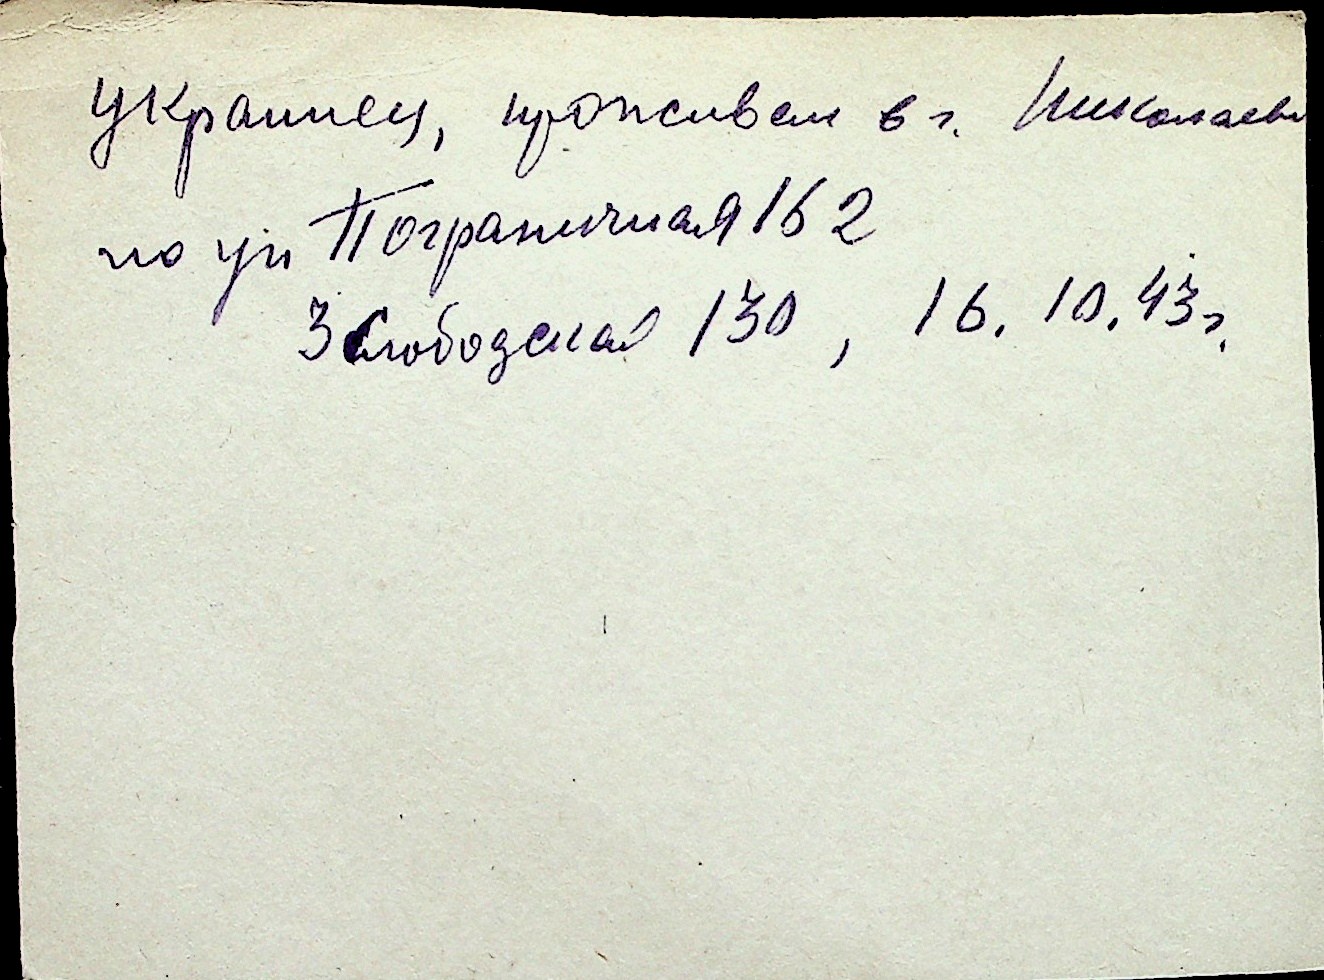 Украинец, проживал в г. Николаеве
по ул Пограничная 162
3 Слободская 130, 16.10.43г.